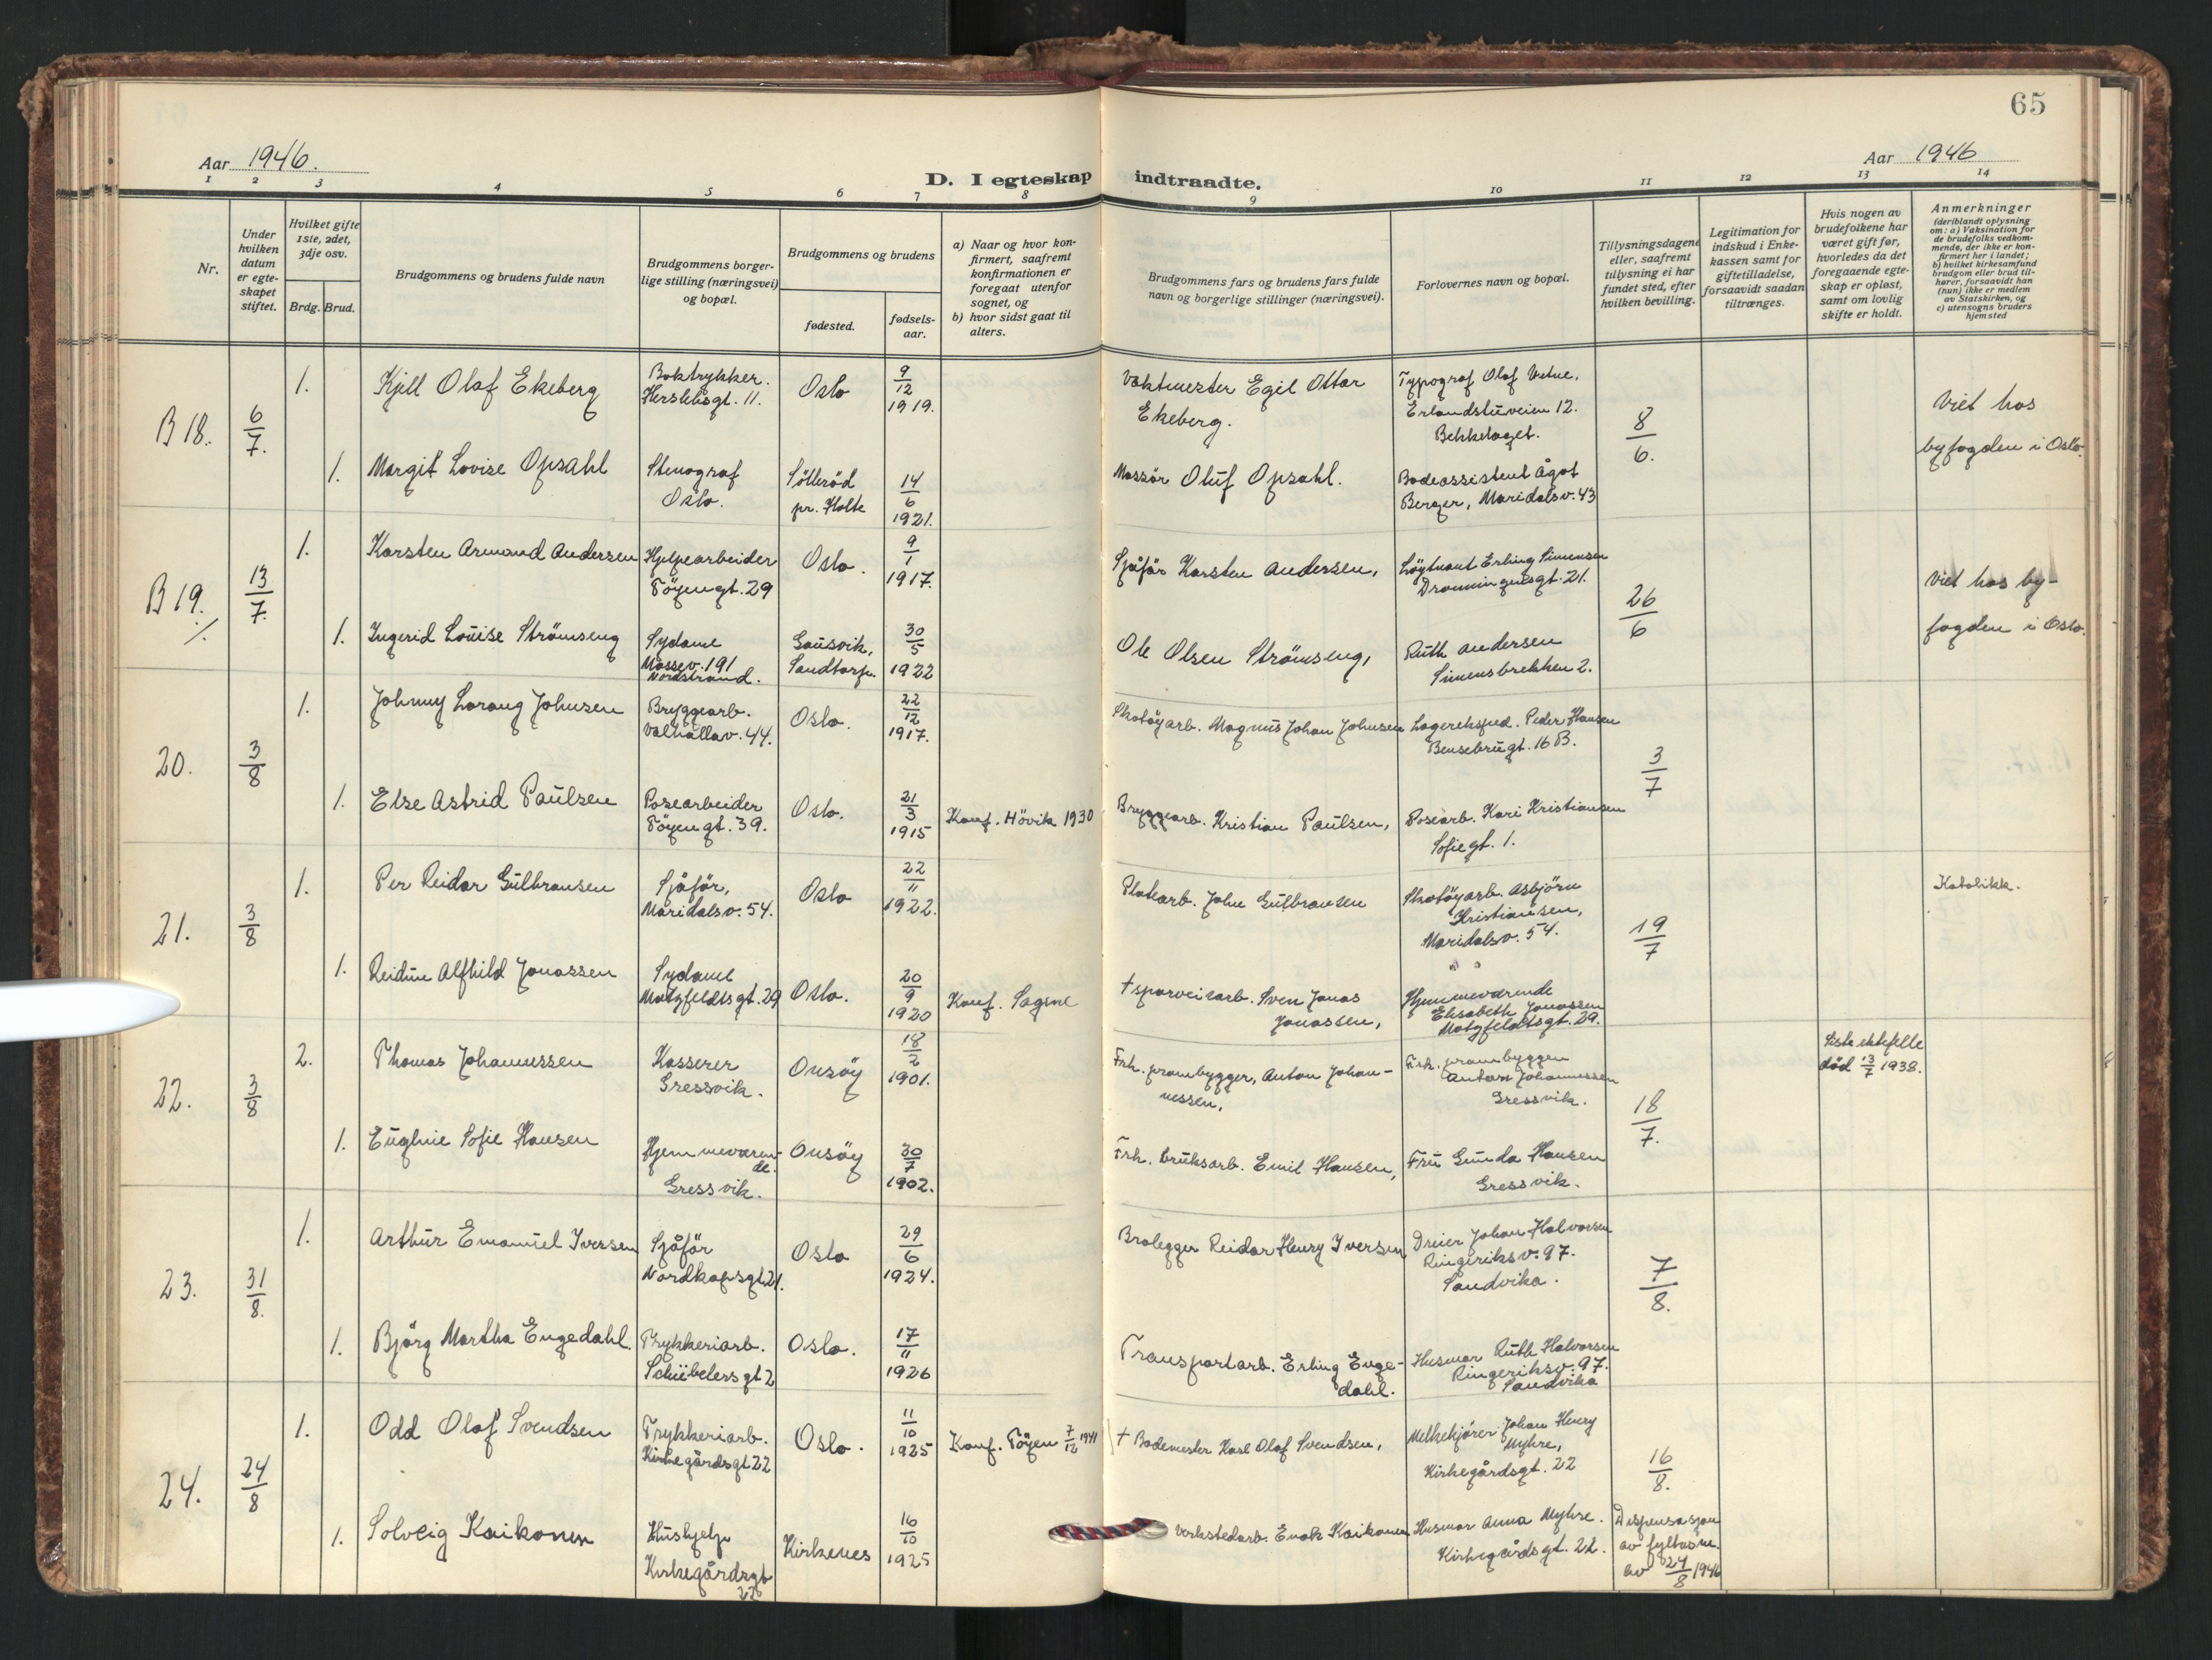 65
Aar 1946.
Aar 1946
D. I egteskap indtraadte.
1 2 3 4 5 6 7 8 9 10 11 12 13 14
Nr.
Under hvilken datum er egte-skapet stiftet.
Hvilket gifte 1ste, 2det, 3dje osv.
Brdg. Brud.
Brudgommens og brudens fulde navn
Brudgommens borger-lige stilling (næringsvei) og bopæl.
Brudgommens og brudens
fødested.
fødsels-aar.
a) Naar og hvor kon-firmert, saafremt konfirmationen er foregaat utenfor sognet, og
b) hvor sidst gaat til alters.
Brudgommens fars og brudens fars fulde navn og borgerlige stillinger (næringsvei).
Forlovernes navn og bopæl.
Tillysningsdagene eller, saafremt tillysning ei har fundet sted, efter hvilken bevilling.
Legitimation for indskud i Enke-kassen samt for giftetilladelse, forsaavidt saadan tiltrænges.
Hvis nogen av brudefolkene har været gift før, hvorledes da det foregaaende egte-skap er opløst, samt om lovlig skifte er holdt.
Anmerkninger
(deriblandt oplysning om: a) Vaksination for de brudefolks vedkom-mende, der ikke er kon-firmert her i landet; b) hvilket kirkesamfund brudgom eller brud til-hører, forsaavidt han (hun) ikke er medlem av Statskirken, og c) utensogns bruders hjemsted
B 18. 6/7.
1. Kjell Olaf Ekeberg
Boktrykker. Herslebsgt. 11.
Oslo
9/12 1919.
Vaktmester Egil Ottar Ekeberg.
Typograf Olaf
Erlandstuveien 12. Bekkelaget.
8/6.
Viet hos byfogden i Oslo.
1. Margit Lovise Opsahl
Stenograf Oslo.
Söllerød pr. Holte
14/6 1921.
Massør Oluf Opsahl.
Badeassistent Ågot Berger, Maridalsv. 43
B 19. 13/7.
1. Karsten Armand Andersen
Hjelpearbeider Töyengt. 29
Oslo.
9/1 1917.
Sjåfør Karsten Andersen,
Löytnant Erling Simensen Dronningensgt. 21.
26/6
Viet hos by-fogden i Oslo.
1. Ingerid Louise Strömseng
Sydame Mossev. 191 Nordstrand.
Gausvik, Sandtorg.
30/5 1922
Ole Olsen Strömseng,
Ruth Andersen Simensbrekken 2.
20. 3/8
1. Johnny Larang Johnsen
Bryggearb. Valhallav. 44.
Oslo.
22/12 1917.
Skotöyarb. Magnus Johan Johnsen
Lagereksped. Peder Hansen Bentsebrugt. 16 B.
3/7
1. Else Astrid Paulsen
Posearbeider Töyengt. 39.
Oslo.
21/3 1915
Konf. Hövik 1930
Bryggearb. Kristian Paulsen,
Posearb. Kari Kristiansen Sofiegt. 1.
21. 3/8
1. Per Reidar Gulbransen
Sjåför, Maridalsv. 54.
Oslo
22/11 1922.
Platearb. John Gulbransen
Skotöyarb. Asbjörn Kristiansen, Maridalsv. 54.
19/7
Katolikk.
1. Reidun Alfhild Jonassen
Sydame Motzfeldtsgt. 29
Oslo.
20/9 1920
Konf. Sagene
† sporveisarb. Sven Jonas Jonassen,
Hjemmeværende Elisabeth Jonassen Motzfeldtsgt. 29.
22. 3/8
2. Thomas Johannessen
Kasserer Gressvik.
Onsöy
18/2 1901.
Frh. prambygger, Anton Johan-nessen,
Frh. prambygger Anton Johannessen Gressvik.
18/7.
Siste ektefelle död 13/7 1938.
1. Eughnie Sofie Hansen
Hjemmeværen-de. Gressvik.
Onsöy
30/7 1902.
Frh. bruksarb. Emil Hansen,
Fru Gunda Hansen Gressvik.
23. 31/8.
1. Arthur Emanuel Iversen
Sjåför Nordkapsgt. 21.
Oslo
29/6 1924.
Brolegger Reidar Henry Iversen
Dreier Johan Halvorsen Ringeriksv. 97. Sandvika.
7/8.
1. Björg Martha Engedahl.
Trykkeriarb. Schübelersgt 2
Oslo.
17/11 1926
Transportarb. Erling Enge-dahl.
Husmor Ruth Halvorsen Ringeriksv. 97. Sandvika
24. 24/8
1. Odd Olaf Svendsen
Trykkeriarb. Kirkegårdsgt 22
Oslo.
11/10 1925
Konf. Töyen 7/12 1941
† Bademester Karl Olaf Svendsen,
Melkekjører Johan Henry Myhre, Kirkegårdsgt. 22
16/8.
1. Solveig Kaikonen
Hushjelp Kirkegårdsgt 22
Kirkenes
16/10 1925
Verkstedarb. Enok Kaikonen
Husmor Anna Myhre. Kirkegårdsgt. 22.
Dispensasjon av fylkesm. av 24/8 1946